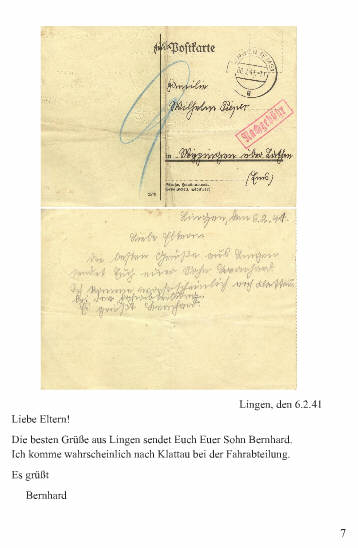 Postkarte
Familie
Wilhelm
Nachgebühr
in
(Ems)
Lingen, den 6.2.41.
Liebe Eltern
die besten Grüße aus Lingen
sendet Euch euer Sohn Bernhard
Ich komme wahrscheinlich nach Klattau
bei der Fahrabteilung.
Es grüßt Bernhard
Lingen, den 6.2.41
Liebe Eltern!
Die besten Grüße aus Lingen sendet Euch Euer Sohn Bernhard.
Ich komme wahrscheinlich nach Klattau bei der Fahrabteilung.
Es grüßt
Bernhard
7